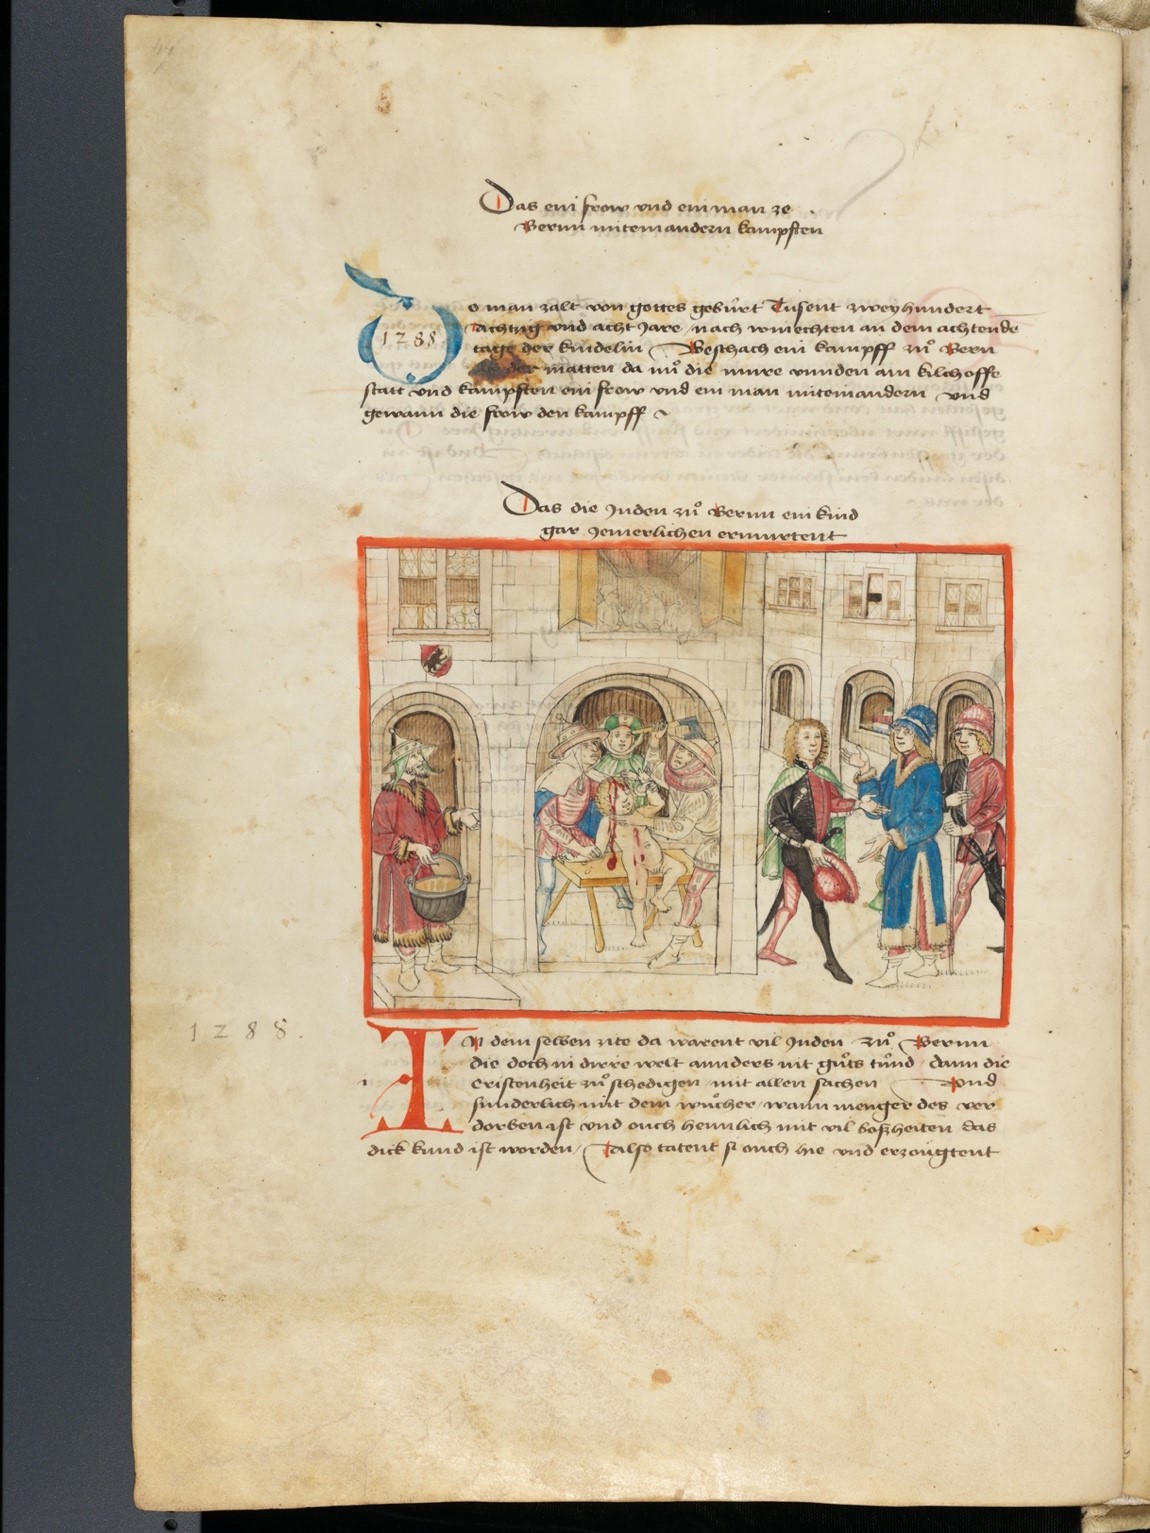 Das ein frow vnd ein man ze
Bernn mitteinandern kampften
Do man zalt von gottes gebürt Tusent zweyhundert
1288
Achtzig vnd acht Jare / nach winechten an dem achtende
tage der kindelin Beschach ein kampff zů Bern
der matten da nů die mure vnnden am kilchoffe
statt vnd kampften ein frow vnd ein man mitteinandern vnd
gewann die frow den kampff
Das die Juden zů Bernn ein kind
gar Jemerlichen ermurtent
1288.
In dem selben zite da warent vil Juden zů Bernn
die doch in dirre welt annders nit gůts tůnd / dann die
cristenheit zů schedigen / mit allen sachen vnd
sunderlich mit dem wůcher / wann menger des ver
dorben ist vnd ouch heimlich mit vil boßheiten das
dick kund ist worden / Also tatent si ouch hie vnd erzöugtent